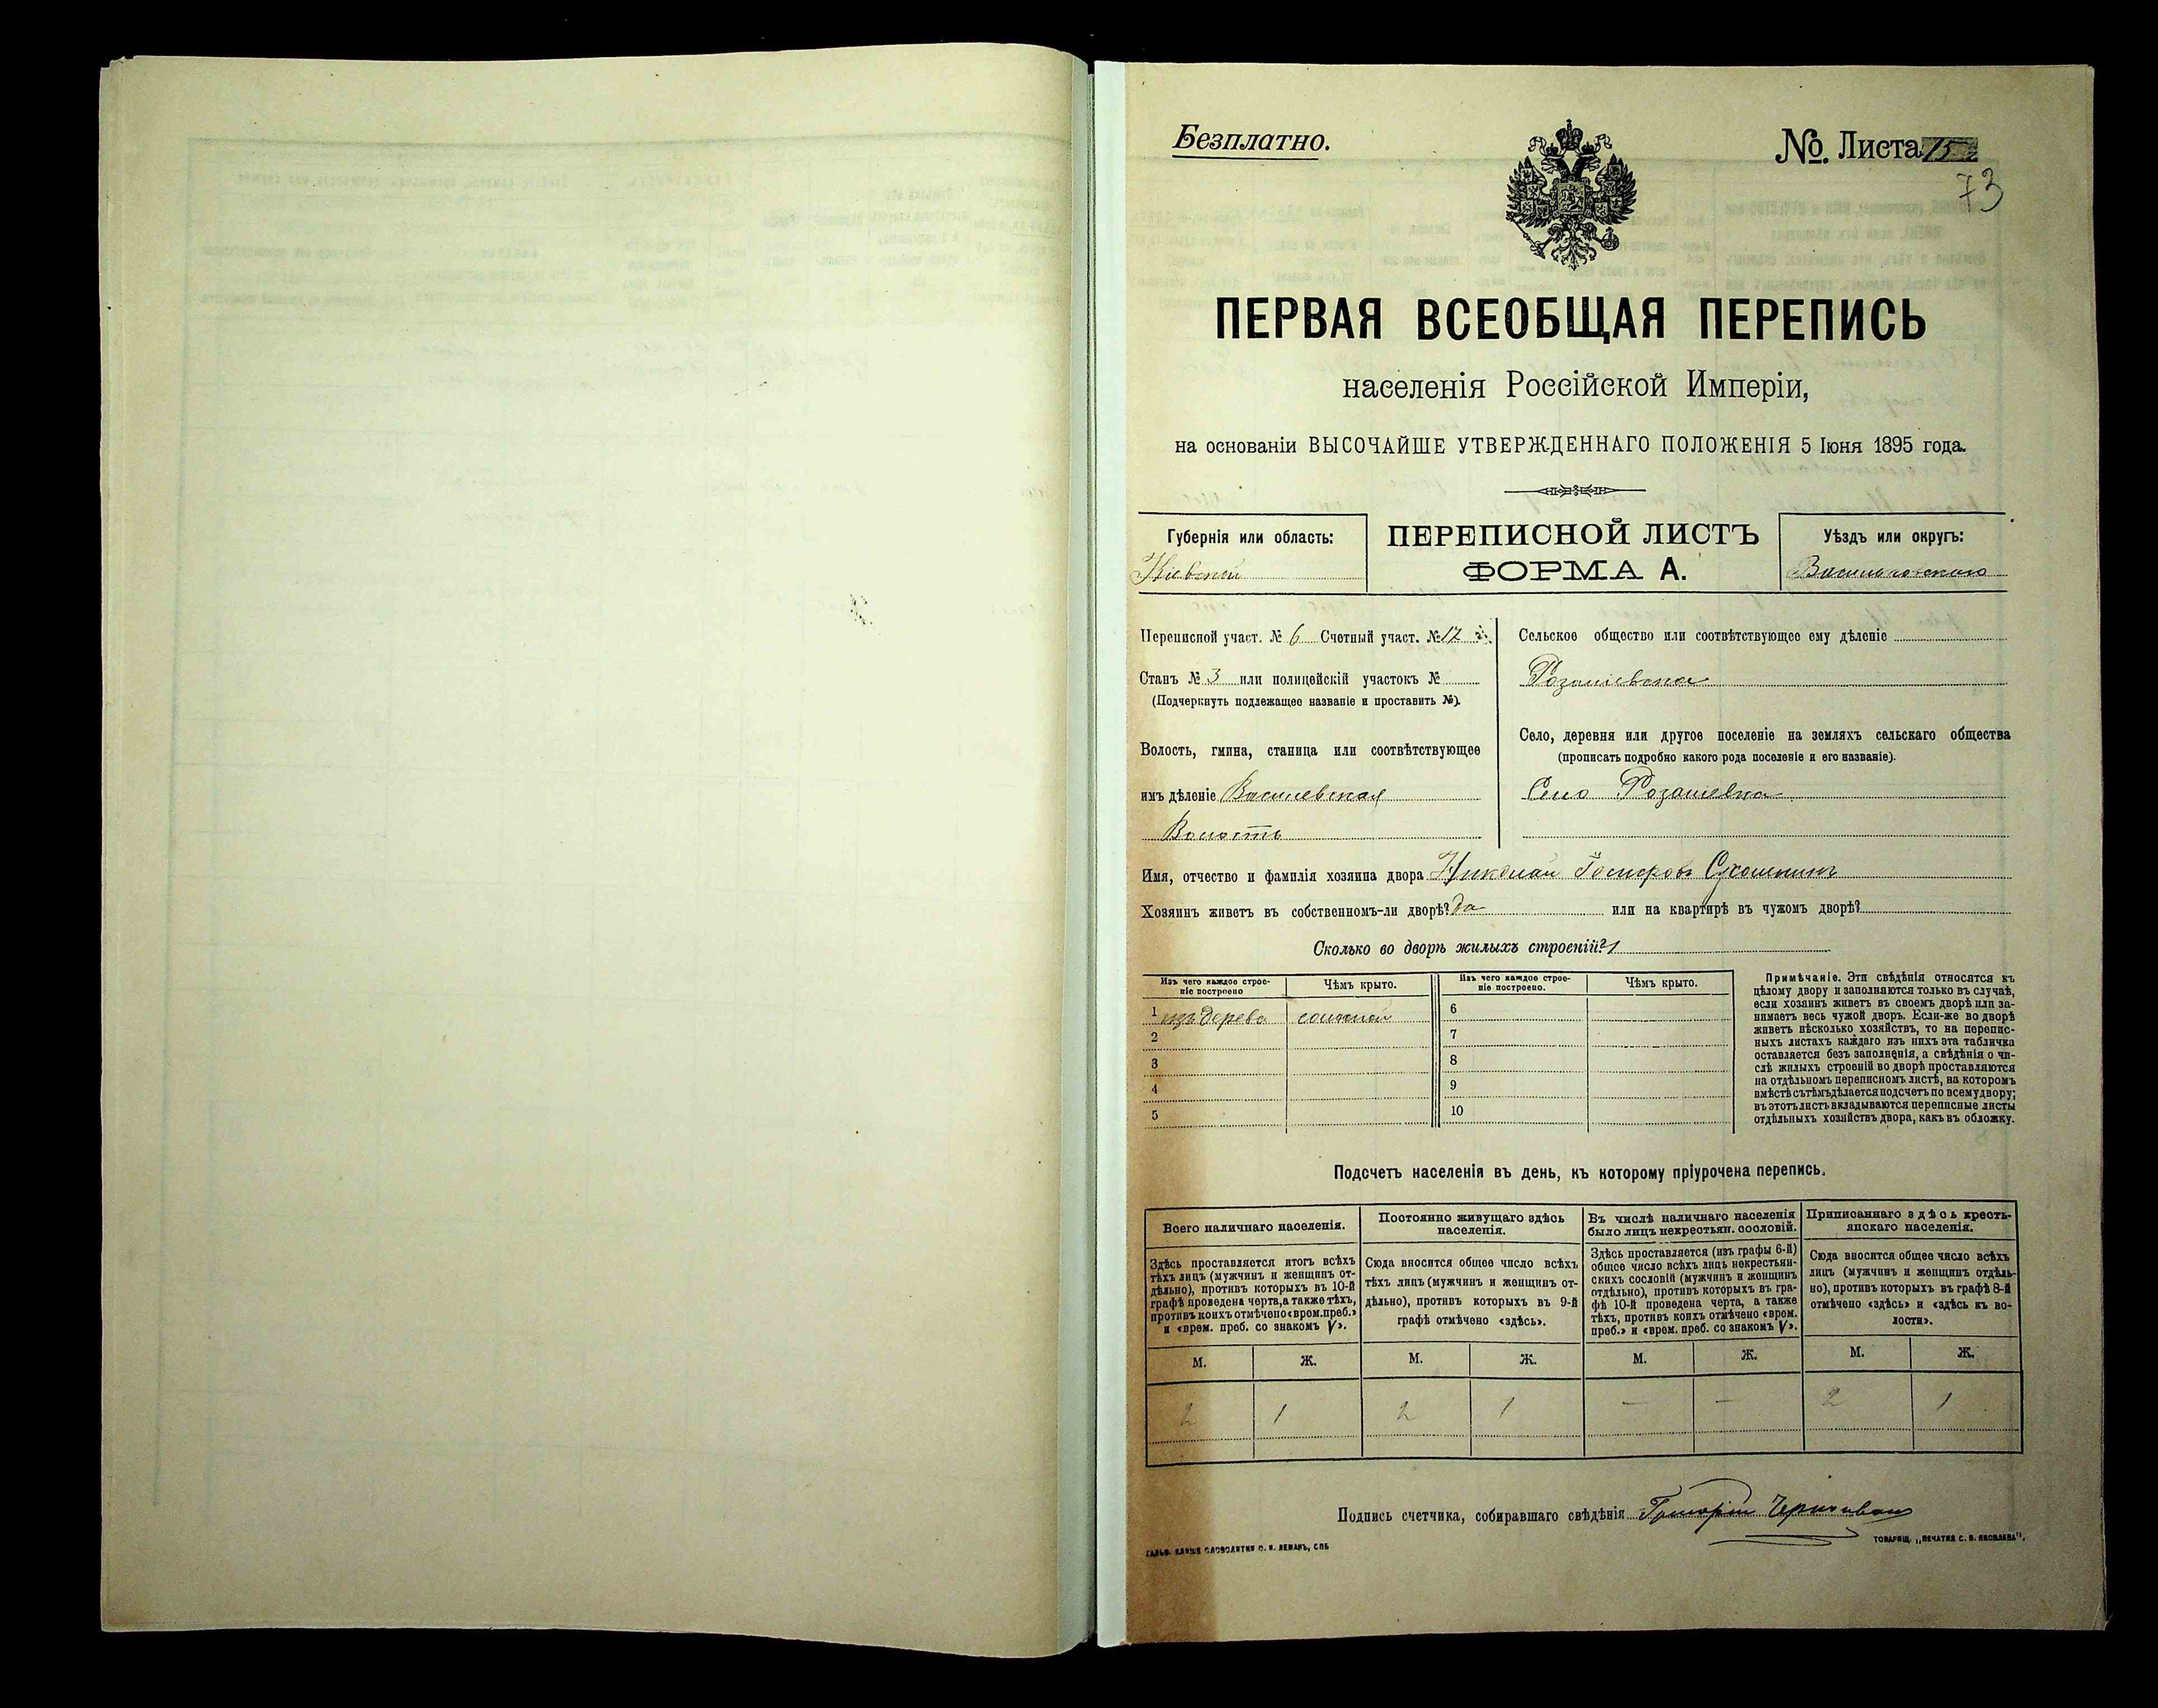 Безплатно.
№. Листа 75
73
ПЕРВАЯ ВСЕОБЩАЯ ПЕРЕПИСЬ
населенія Россійской Имперіи,
на основаніи ВЫСОЧАЙШЕ УТВЕРЖДЕННАГО ПОЛОЖЕНІЯ 5 Іюня 1895 года.
Губернія или область:
Кіевской
ПЕРЕПИСНОЙ ЛИСТЪ
ФОРМА А.
Уѣздъ или округъ:
Васильковскаго
Переписной участ. № 6 Счетный участ. № 12
Станъ № 3 или полицейскій участокъ №
(Подчеркнуть подлежащее названіе и проставить №).
Волость, гмина, станица или соотвѣтствующее
имъ дѣленіе
Волость
Сельское общество или соотвѣтствующее ему дѣленіе
Село, деревня или другое поселеніе на земляхъ сельскаго общества
(прописать подробно какого рода поселеніе и его названіе).
Село
Имя, отчество и фамилія хозяина двора Николай
Хозяинъ живетъ въ собственномъ-ли дворѣ? Да или на квартирѣ въ чужомъ дворѣ?
Сколько во дворѣ жилыхъ строеній? 1
Изъ чего каждое строе-
ніе построено
Чѣмъ крыто.
Изъ чего каждое строе-
ніе построено.
Чѣмъ крыто.
1 изъ дерева соломой
2
3
4
5
6
7
8
9
10
Примѣчаніе. Эти свѣдѣнія относятся къ
цѣлому двору и заполняются только въ случаѣ,
если хозяинъ живетъ въ своемъ дворѣ или за-
нимаетъ весь чужой дворъ. Если-же во дворѣ
живетъ нѣсколько хозяйствъ, то на перепис-
ныхъ листахъ каждаго изъ нихъ эта табличка
оставляется безъ заполненія, а свѣдѣнія о чи-
слѣ жилыхъ строеній во дворѣ проставляются
на отдѣльномъ переписномъ листѣ, на которомъ
вмѣстѣ съ тѣмъ дѣлается подсчетъ по всему двору;
въ этотъ листъ вкладываются переписные листы
отдѣльныхъ хозяйствъ двора, какъ въ обложку.
Подсчетъ населенія въ день, къ которому пріурочена перепись.
Всего наличнаго населенія.
Здѣсь проставляется итогъ всѣхъ
тѣхъ лицъ (мужчинъ и женщинъ от-
дѣльно), противъ которыхъ въ 10-й
графѣ проведена черта, а также тѣхъ,
противъ коихъ отмѣчено «врем. преб.»
и «врем. преб. со знакомъ V».
Постоянно живущаго здѣсь
населенія.
Сюда вносится общее число всѣхъ
тѣхъ лицъ (мужчинъ и женщинъ от-
дѣльно), противъ которыхъ въ 9-й
графѣ отмѣчено «здѣсь».
Въ числѣ наличнаго населенія
было лицъ некрестьян. сословій.
Здѣсь проставляется (изъ графы 6-й)
общее число всѣхъ лицъ некрестьян-
скихъ сословій (мужчинъ и женщинъ
отдѣльно), противъ которыхъ въ гра-
фѣ 10-й проведена черта, а также
тѣхъ, противъ коихъ отмѣчено «врем.
преб.» и «врем. преб. со знакомъ V».
Приписаннаго здѣсь кресть-
янскаго населенія.
Сюда вносится общее число всѣхъ
лицъ (мужчинъ и женщинъ отдѣль-
но), противъ которыхъ въ графѣ 8-й
отмѣчено «здѣсь» и «здѣсь къ во-
лости».
М. Ж. М. Ж. М. Ж. М. Ж.
2 1 2 1 — — 2 1
Подпись счетчика, собиравшаго свѣдѣнія
ГАЛЬВ. КЛИШЕ СЛОВОЛИТНИ О. И. ЛЕМАНЪ, СПБ
ТОВАРИЩ. „ПЕЧАТНЯ С. П. ЯКОВЛЕВА".